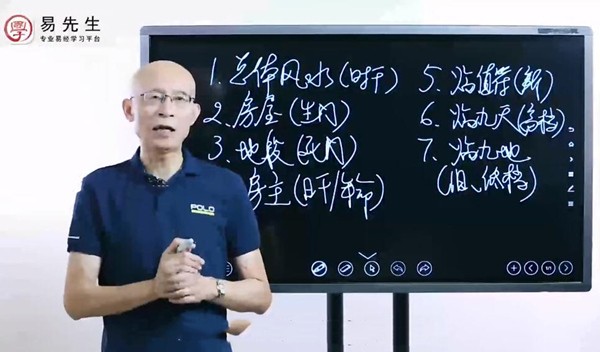 易先生
专业易经学习平台
1. 总体风水(时干)
2. 房屋(生门)
3. 地段(死门)
房主(日干/年命)
5. 临值符(新)
6. 临九天(高档)
7. 临九地
(旧、低档)
POLO